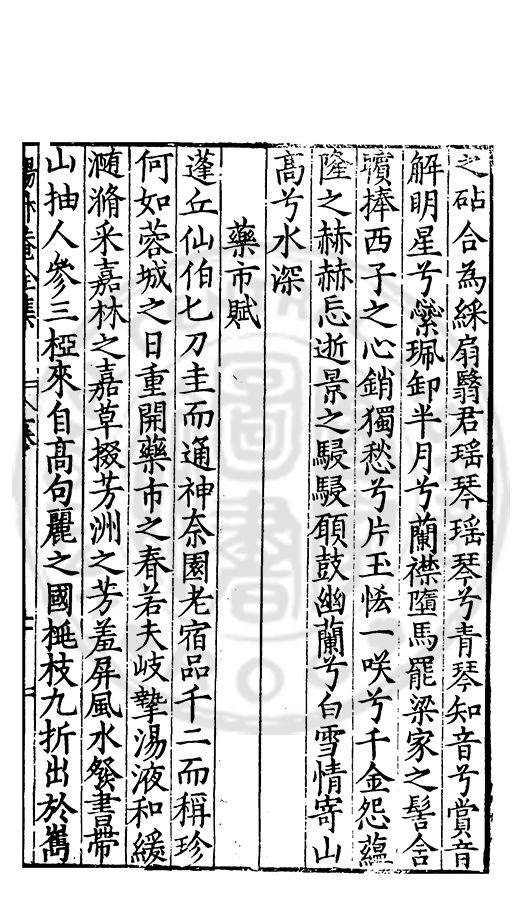 之砧合為綵扇翳君瑶琴瑶琴兮青琴知音兮賞音
解明星兮縈珮卸半月兮蘭襟墮馬罷梁家之髻含
嚬捧西子之心銷獨愁兮片玉恡一咲兮千金怨蘊
隆之赫赫忘逝景之駸駸願鼓幽蘭兮白雪情寄山
高兮水深
藥市賦
蓬丘仙伯七刀圭而通神奈園老宿品千二而稱珍
何如蓉城之日重開藥市之春若夫岐摯湯液和緩
瀡滫采嘉林之嘉草掇芳洲之芳羞屏風水發書帶
山抽人參三椏來自高句麗之國梴枝九折出於雟